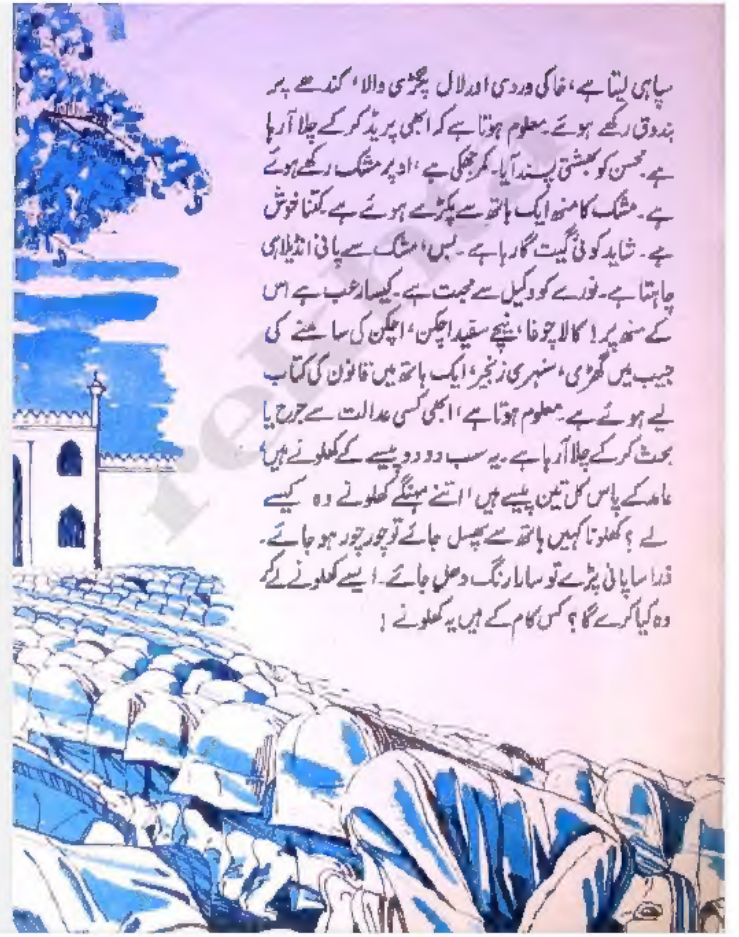 سپاہی لیتا ہے، خاکی وردی اور لال پگڑی والا، کندھے پر
بندوق رکھے ہوئے۔ معلوم ہوتا ہے کہ ابھی پریڈ کر کے چلا آ رہا
ہے۔ محسن کو بھشتی پسند آیا۔ کمر جھکی ہے، اوپر مشک رکھے ہوئے
ہے۔ مشک کا منھ ایک ہاتھ سے پکڑے ہوئے ہے کتنا خوش
ہے۔ شاید کوئی گیت گا رہا ہے۔ بس، مشک سے پانی انڈیلا ہی
چاہتا ہے۔ نورے کو وکیل سے محبت ہے۔ کیسا رعب ہے اس
کے منھ پر! کالا چوغا، نیچے سفید اچکن، اچکن کی سامنے کی
جیب میں گھڑی، سنہری زنجیر، ایک ہاتھ میں قانون کی کتاب
لیے ہوئے ہے۔ معلوم ہوتا ہے، ابھی کسی عدالت سے جرح یا
بحث کر کے چلا آ رہا ہے۔ یہ سب دو دو پیسے کے کھلونے ہیں،
حامد کے پاس کل تین پیسے ہیں، اتنے مہنگے کھلونے وہ کیسے
لے؟ کھلونا کہیں ہاتھ سے پھسل جائے تو چور چور ہو جائے۔
ذرا سا پانی پڑے تو سارا رنگ دھل جائے۔ ایسے کھلونے لے کر
وہ کیا کرے گا؟ کس کام کے ہیں یہ کھلونے!
rekhta